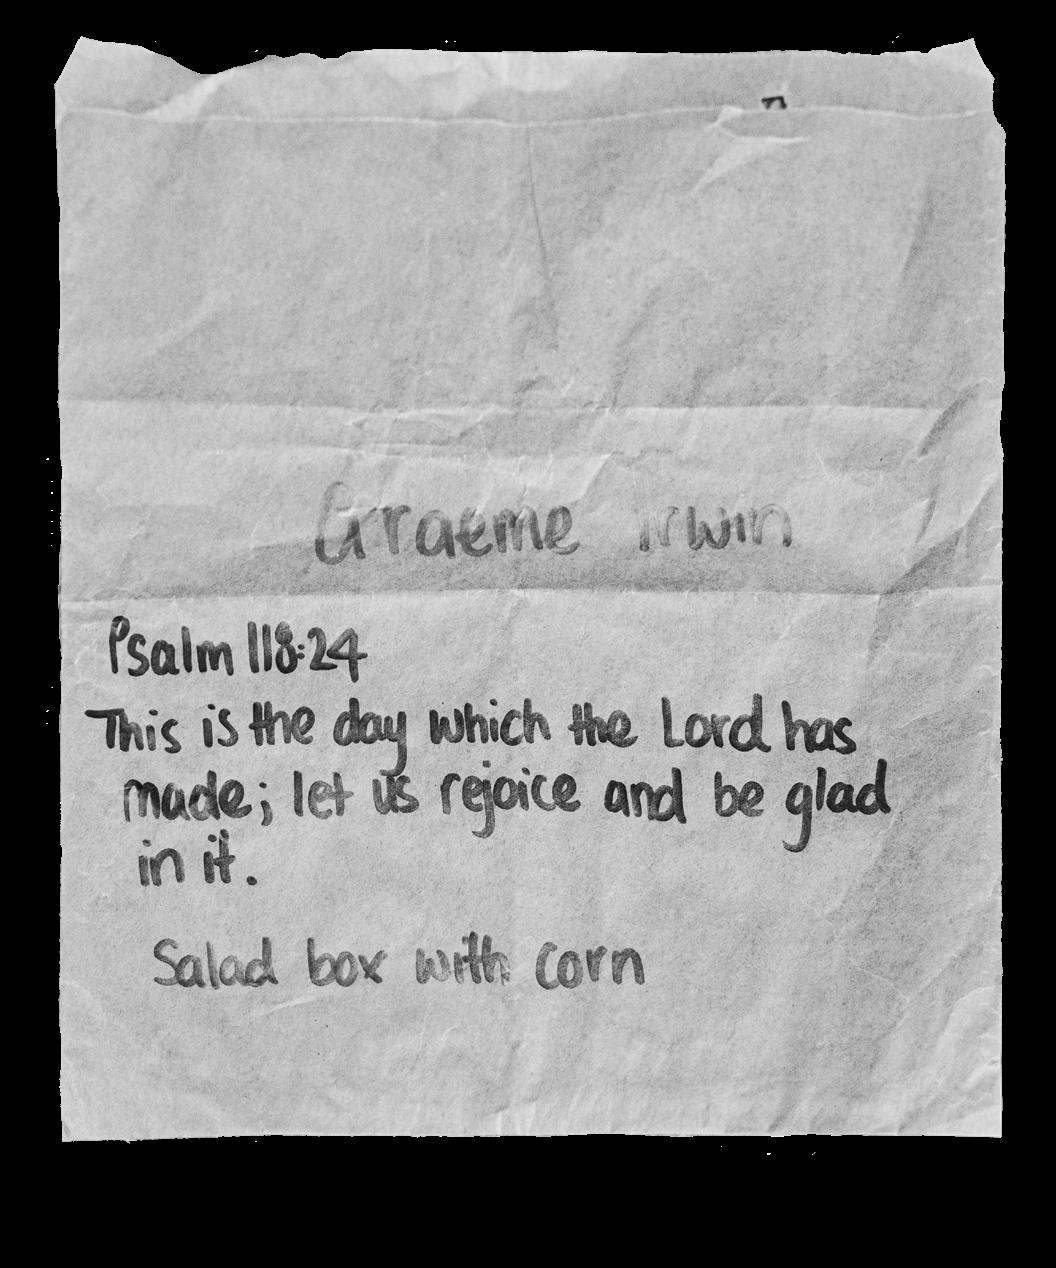 Graeme Irwin
Psalm 118:24
This is the day which the Lord has
made; let us rejoice and be glad
in it.
Salad box with corn